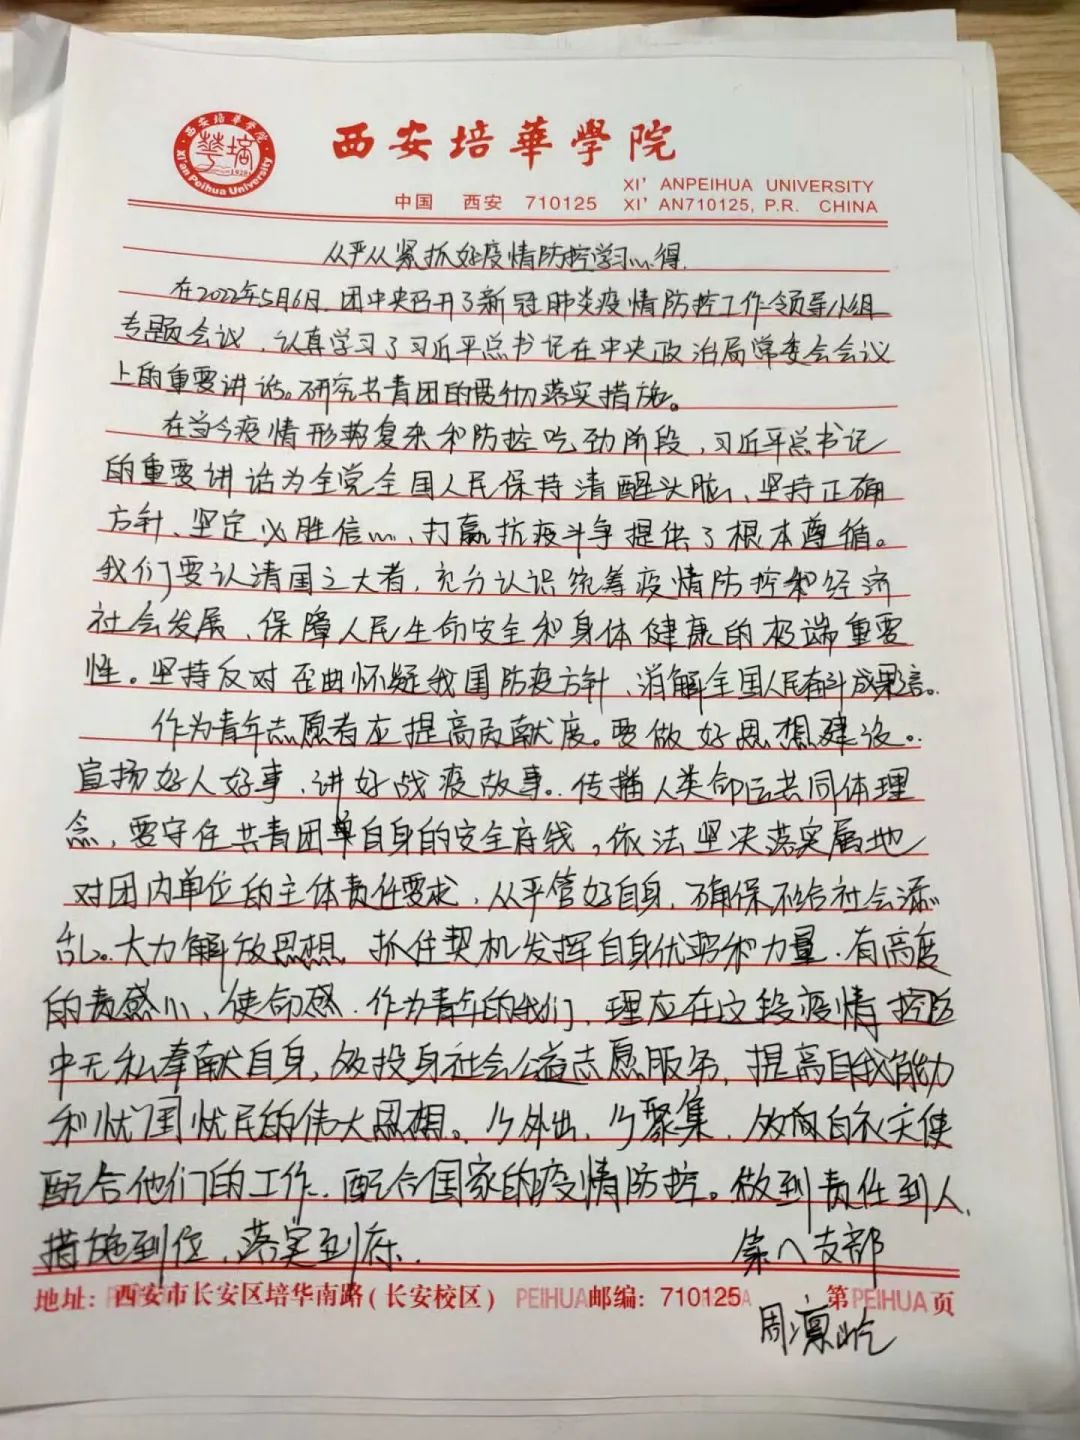 西安培華學院
XI' ANPEIHUA UNIVERSITY
中国 西安 710125 XI' AN710125, P.R. CHINA
西安培华学院
Xi'an Peihua University
1928
从严从紧抓好疫情防控学习心得.
在2022年5月6日,团中央召开了新冠肺炎疫情防控工作领导小组
专题会议,认真学习了习近平总书记在中央政治局常委会会议
上的重要讲话。研究共青团的贯彻落实措施。
在当今疫情形势复杂和防控吃劲阶段,习近平总书记
的重要讲话为全党全国人民保持清醒头脑、坚持正确
方针、坚定必胜信心、打赢抗疫斗争提供了根本遵循。
我们要认清国之大者,充分认识统筹疫情防控和经济
社会发展、保障人民生命安全和身体健康的极端重要
性。坚持反对歪曲怀疑我国防疫方针、消解全国人民奋斗成果言。
作为青年志愿者应提高贡献度。要做好思想建设。
宣扬好人好事、讲好战疫故事。传播人类命运共同体理
念,要守住共青团单自身的安全底线,依法坚决落实属地
对团内单位的主体责任要求,从严管好自身,确保不给社会添
乱。大力解放思想,抓住契机发挥自身优势和力量.有高度
的责感心、使命感.作为青年的我们,理应在这段疫情控防
中无私奉献自身,多投身社会公益志愿服务,提高自我能力
和忧国忧民的伟大思想。少外出,少聚集,多向白衣天使
配合他们的工作.配合国家的疫情防控。做到责任到人,
措施到位、落实到府.
第八支部
地址:西安市长安区培华南路(长安校区) PEIHUA 邮编:710125 第 PEIHUA 页
周凛屹